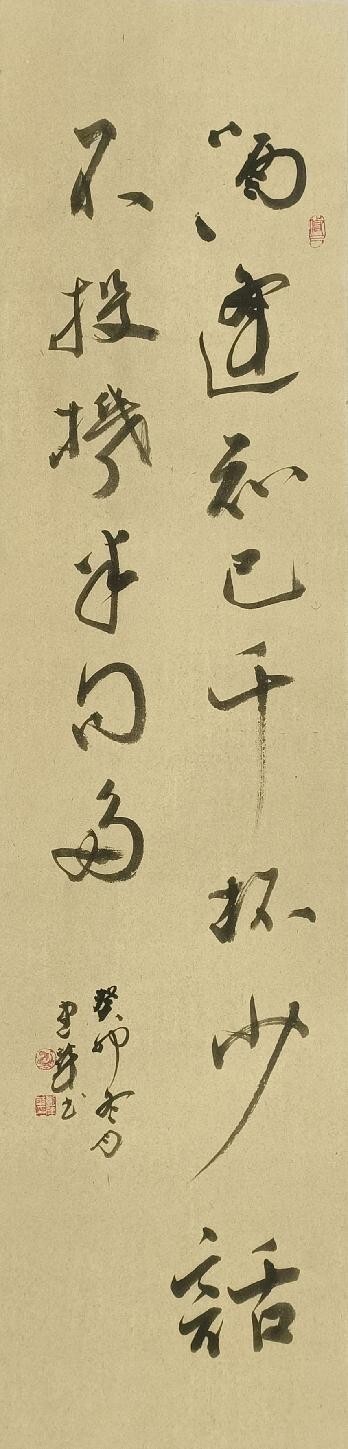 酒逢知己千杯少話
不投機半句多
癸卯冬月
建華书